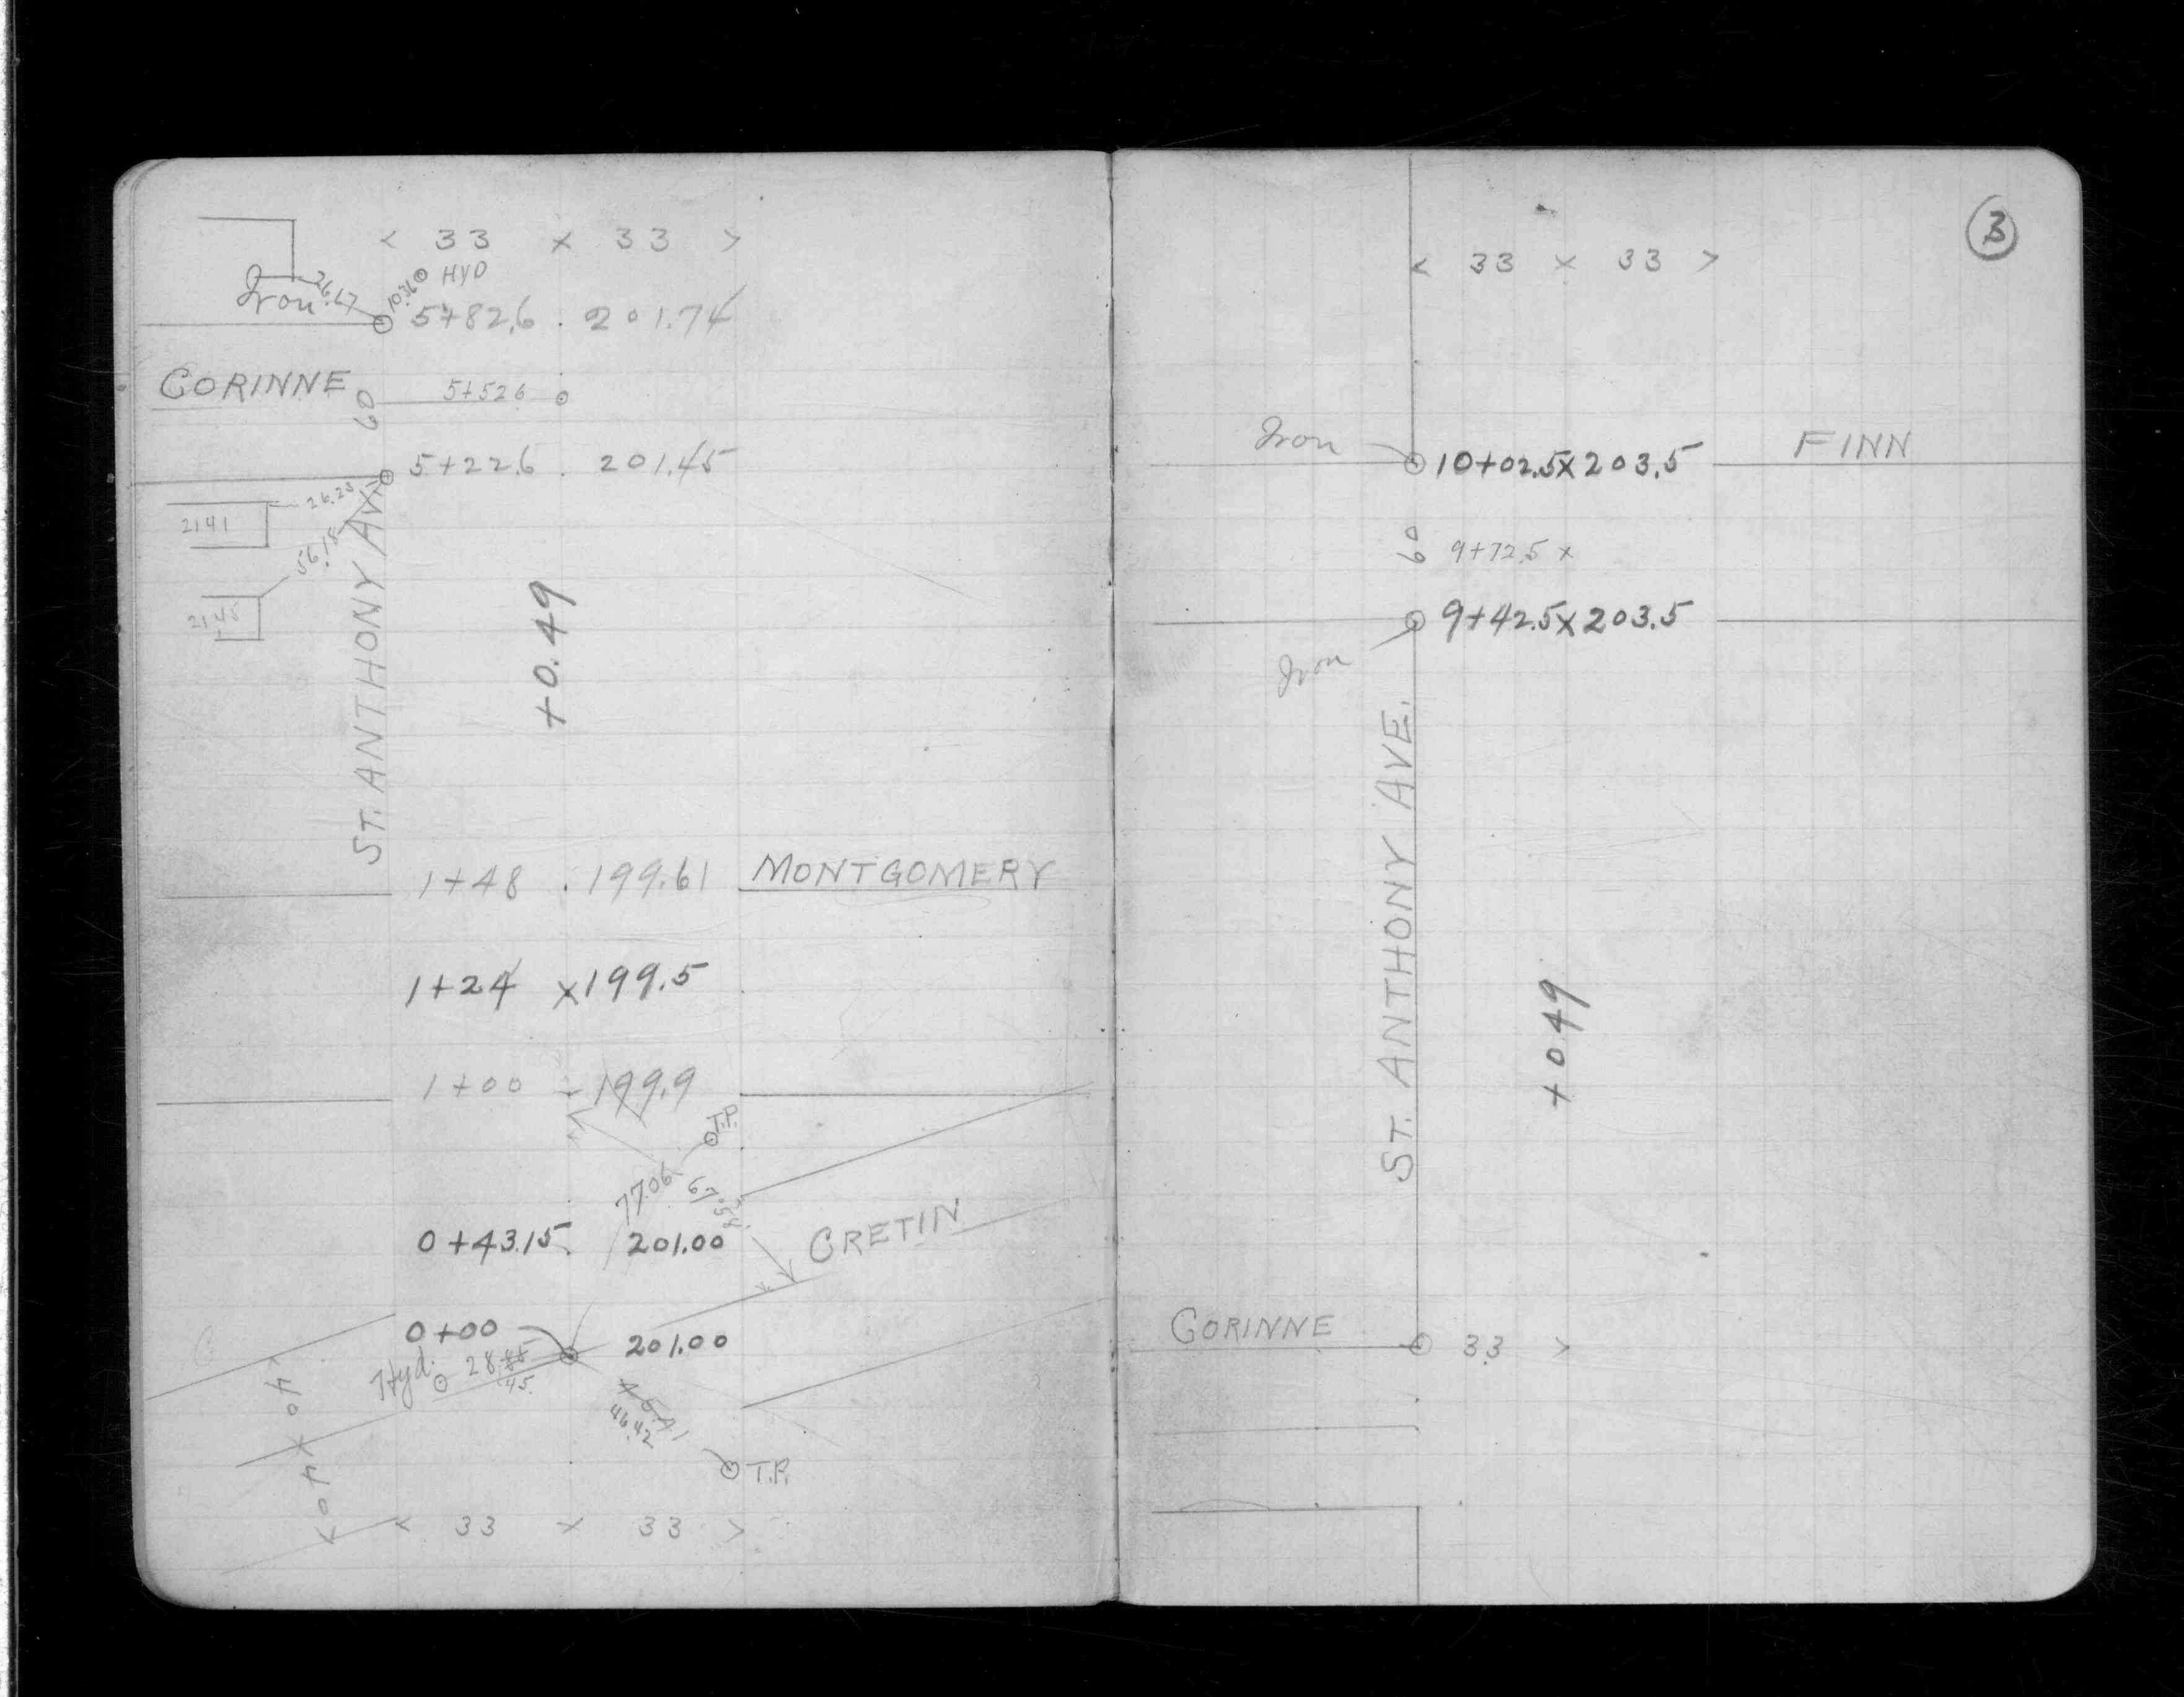 < 33 x 33 >
HYD
10.76
26.67
Iron
5+82.6 . 201.74
CORINNE
60
5+52.6
5+22.6 . 201.45
26.23
2141
56.18
2145
ST. ANTHONY AV.
+0.49
1+48 . 199.61 MONTGOMERY
1+24 x199.5
1+00 - 199.9
T.P.
77.06
0+43.15. 201.00
CRETIN
0+00 201.00
Hyd.
45
40
46.42
40
T.P.
< 33 x 33 >
3
< 33 x 33 >
Iron
10+02.5x203.5
FINN
60
9+72.5 x
9+42.5x203.5
Iron
ST. ANTHONY AVE.
+0.49
CORINNE
33 >